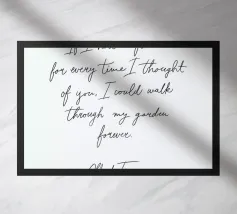 for every time I thought
of you, I could walk
through my garden
forever.